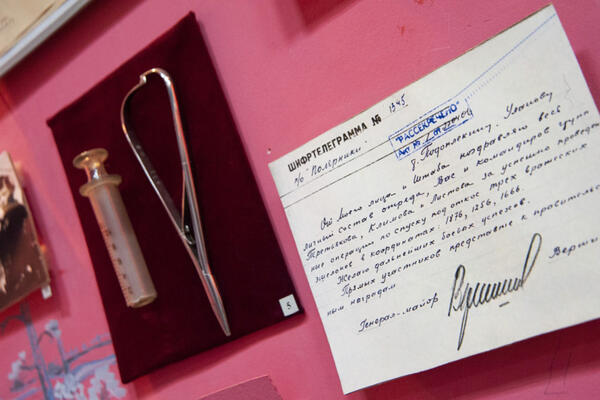 ШИФРТЕЛЕГРАММА № 1345
"РАССЕКРЕЧЕНО"
п/о "Полярники"
д. Подоплекину, Уланову
От моего лица и штаба поздравляю весь
личный состав отряда, Вас и командиров групп
Третьякова, Климова, Листова за успешно проведен
ные операции по спуску под откос трех вражеских
эшелонов в координатах: 1876, 1256, 1666.
Желаю дальнейших боевых успехов.
Прямых участников представьте к правительст
ным наградам
Генерал-майор
Верши
5